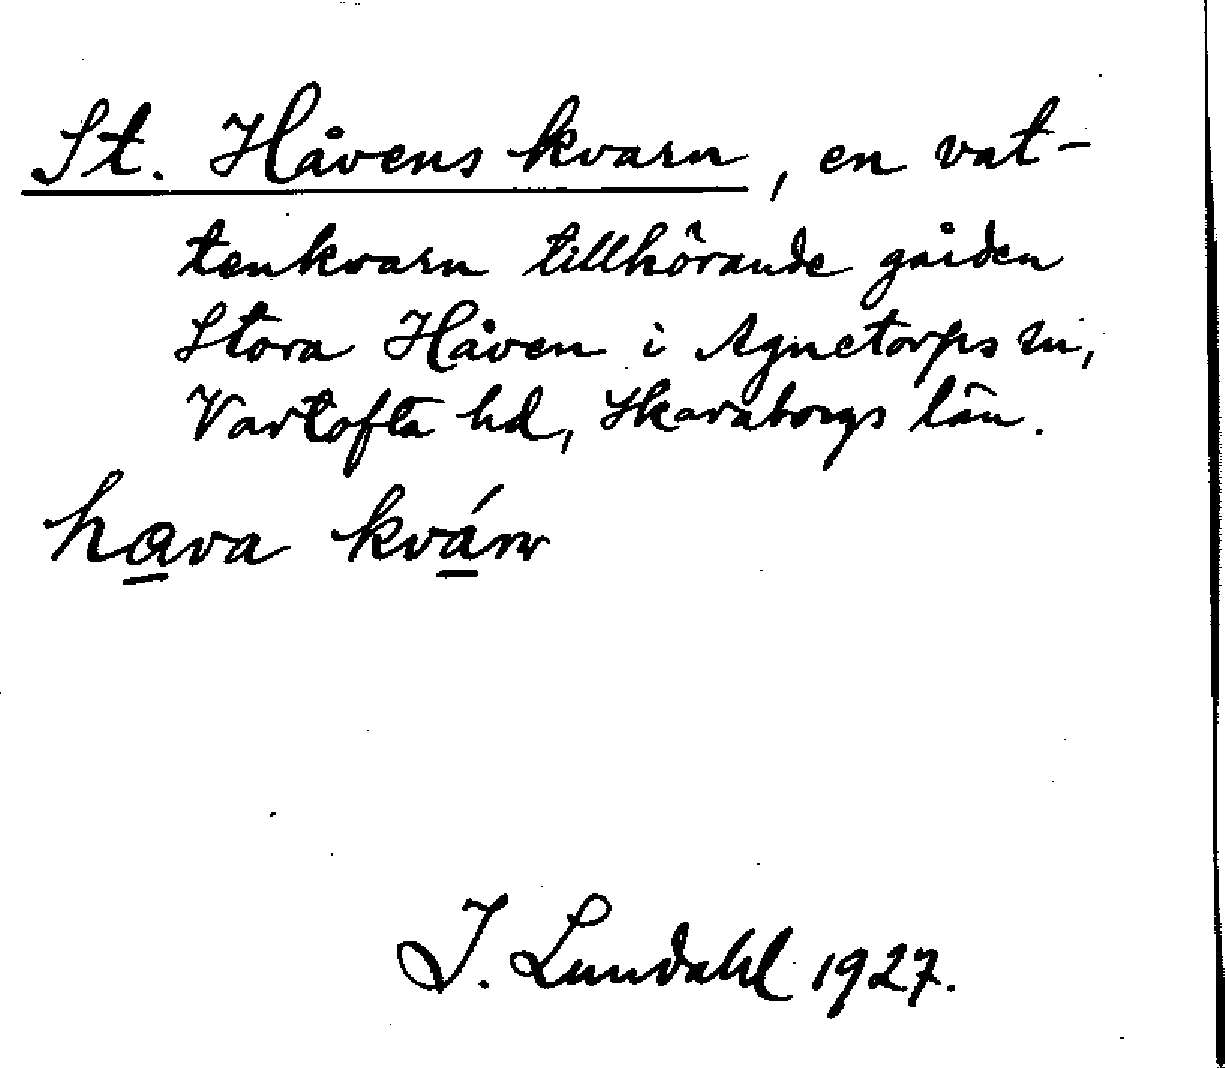 St. Håvens kvarn, en vat-
tenkvarn tillhörande gården
Stora Håven i Agnetorps sn,
Vartofta hd, Skaraborgs län.
hava kvárn
I. Lundahl 1927.